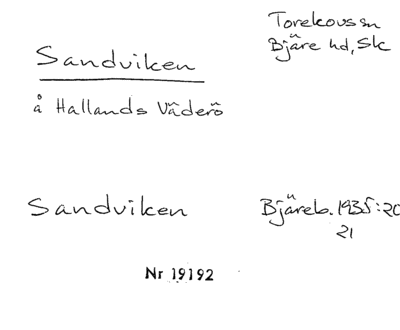 Torekovs sn
Bjäre hd, Sk
Sandviken
å Hallands Väderö
Sandviken
Bjäreb. 1935:20
21
Nr 19192